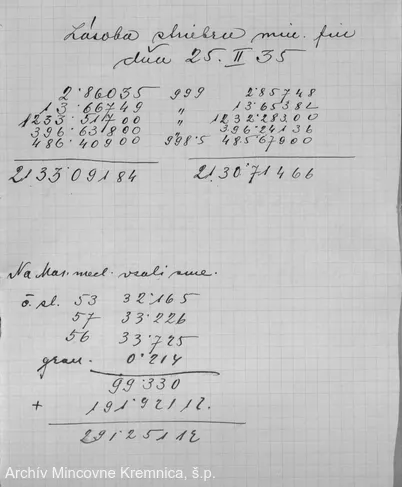 Zásoba striebra min. fin
dňa 25. II 35
2·86035 999 2·85748
13·66749 " 13·65382
1233·51700 " 1232·28300
396·63800 " 396·24136
486·40900 998·5 485·67900
2133·09184 2130·71466
Na Mar. med. vzali sme.
č. sl. 53 32·165
57 33·226
56 33·725
gran. 0·214
99·330
+ 191·92112.
291·25112
Archív Mincovne Kremnica, š.p.